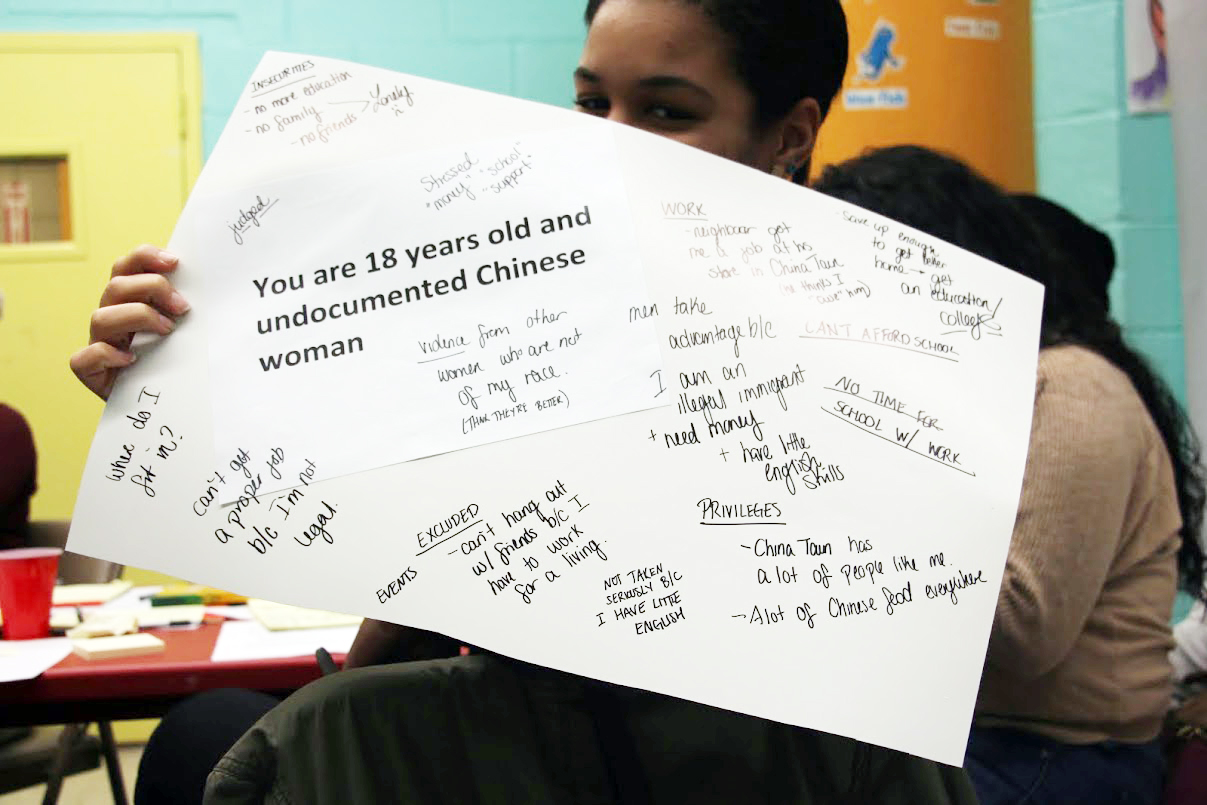 INSECURITIES
- no more education
- no family
- no friends
Lonely
judged
stressed
"money" "school"
"support"
You are 18 years old and
undocumented Chinese
woman
violence from other
women who are not
of my race.
(THINK THEY'RE BETTER)
where do I
fit in?
can't get
a proper job
b/c I'm not
legal.
WORK
-neighbour got
me a job at his
store in China Town
(he thinks I
"owe" him)
-save up enough
to get better
home → get
an education/
college
men take
advantage b/c
I am an
illegal immigrant
+ need money
+ have little
english
skills
CAN'T AFFORD SCHOOL
NO TIME FOR
SCHOOL W/ WORK
EVENTS EXCLUDED
-can't hang out
w/ friends b/c I
have to work
for a living.
NOT TAKEN
SERIOUSLY B/C
I HAVE LITTLE
ENGLISH
PRIVILEGES
-China Town has
a lot of people like me.
-A lot of Chinese food everywhere
blue fish